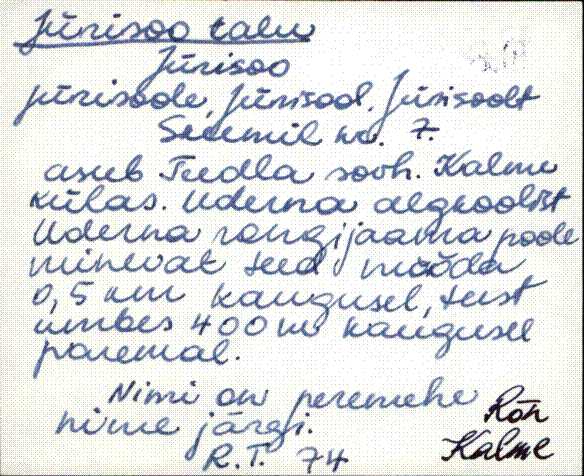 Jürisoo talu
Jürisoo
Jürisoole, Jürisool, Jürisoolt
Seemil nr. 7.
asub Teedla sovh. Kalme
külas. Uderna algkoolist
Uderna rongijaama poole
minevat teed mööda
0,5 km kaugusel, teest
umbes 400 m kaugusel
paremal.
Nimi on peremehe
nime järgi.
R.T. 74
Rõn
Kalme